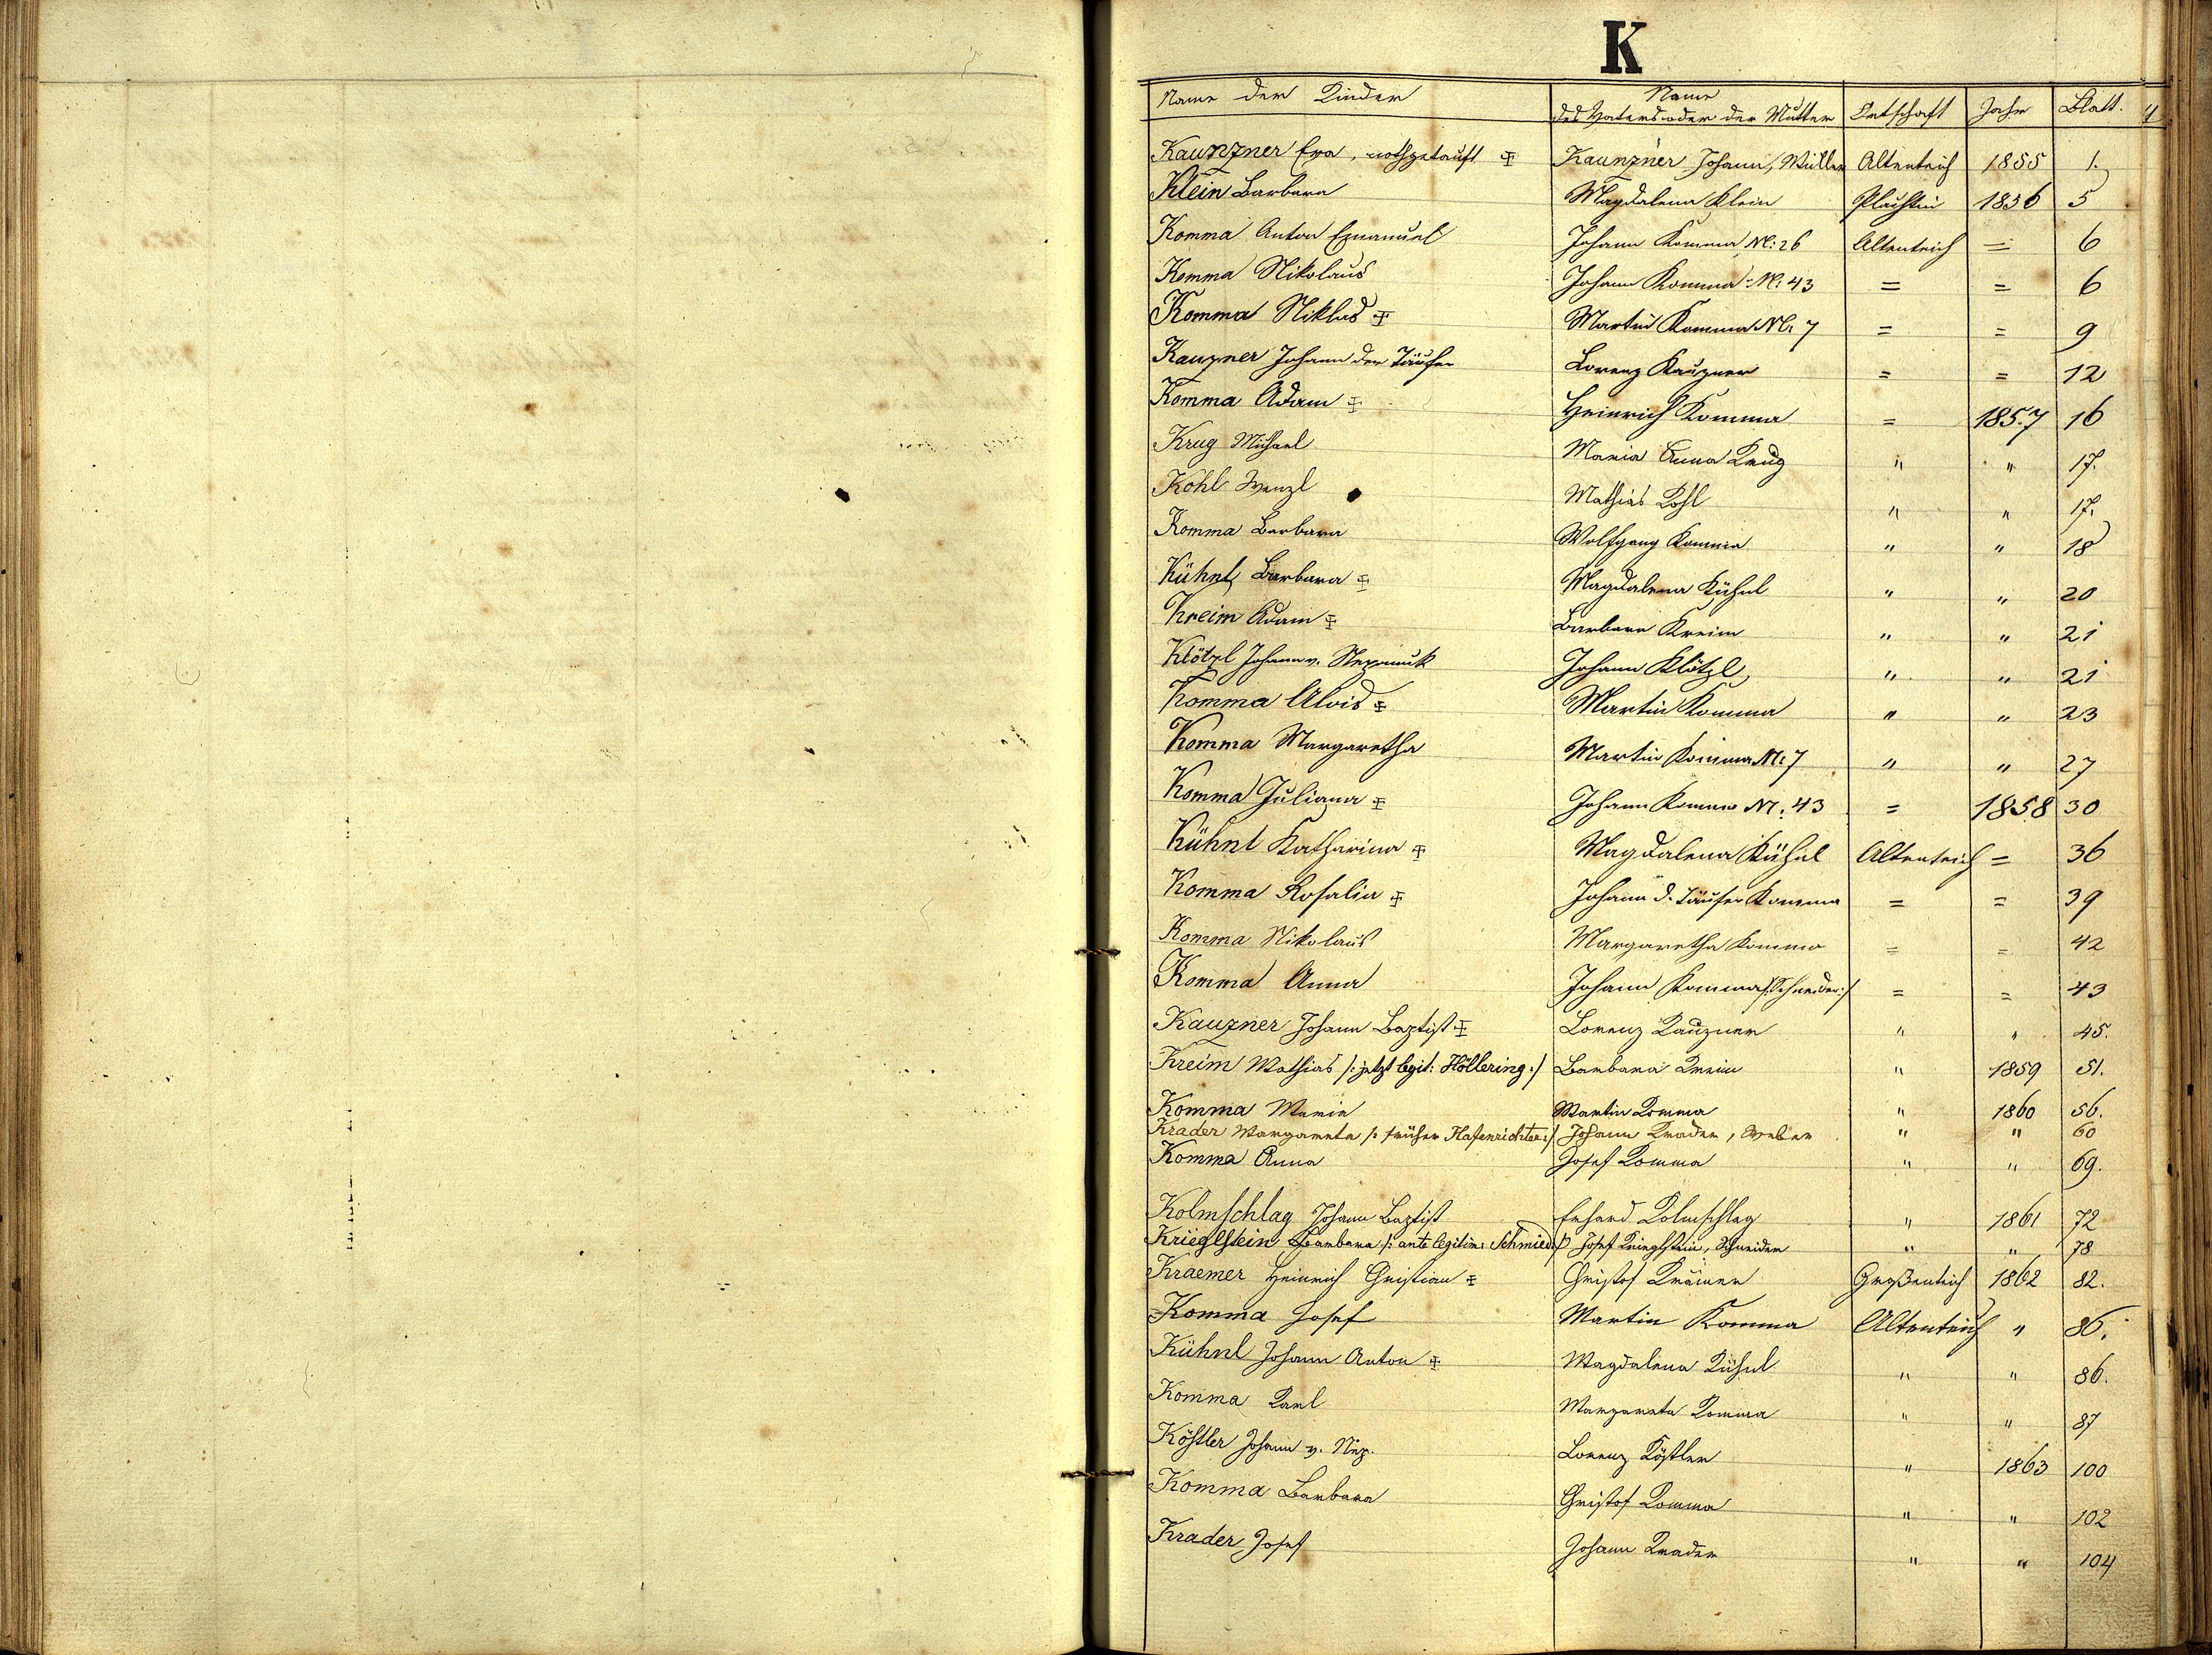 K
Name der Kinder Name des Vaters oder der Mutter Ortschaft Jahr Blatt. 4
Kaunzner Eva, nothgetauft ☩ Kaunzner Johann, Müller Altenteich 1855 1.
Klein Barbara Magdalena Klein 1856 5
Komma Anton Emanuel Johann Komma N: 26 Altenteich = 6
Komma Nikolaus Johann Komma N: 43 = = 6
Komma Niklas ☩ Martin Komma N: 7 = = 9
Kauzner Johann der Täufer Lorenz Kauzner = = 12
Komma Adam ☩ Heinrich Komma = 1857 16
Krug Michael Maria Anna Krug " " 17.
Kohl Wenzl Mathias Kohl " " 17.
Komma Barbara Wolfgang Komma " " 18
Kühnl Barbara ☩ Magdalena Kühnl " " 20
Kreim Adam ☩ Barbara Kreim " " 21
Klötzl Johann v. Nepomuk Johann Klötzl " " 21
Komma Alois ☩ Martin Komma " " 23
Komma Margaretha Martin Komma N: 7 " " 27
Komma Juliana ☩ Johann Komma N: 43 = 1858 30
Kühnl Katharina ☩ Magdalena Kühnl Altenteich = 36
Komma Rosalia ☩ Johann d. Täufer Komma = = 39
Komma Nikolaus Margaretha Komma = = 42
Komma Anna Johann Komma /:Schneider:/ = = 43
Kauzner Johann Baptist ☩ Lorenz Kauzner " " 45.
Kreim Mathias /: jetzt legit: Höllering :/ Barbara Kreim " 1859 51.
Komma Maria Martin Komma " 1860 56.
Krader Margareta /: früher Hafenrichter :/ Johann Krader, Weber " " 60
Komma Anna Josef Komma " " 69.
Kolmschlag Johann Baptist Erhard Kolmschlag " 1861 72
Krieglstein Barbara /: ante legitim: Schmied :/ Josef Krieglstein, Schneider " " 78
Kraemer Heinrich Christian ☩ Christof Krämer Großenteich 1862 82.
Komma Josef Martin Komma Altenteich " 86.
Kühnl Johann Anton ☩ Magdalena Kühnl " " 86.
Komma Karl Margareta Komma " " 87
Köstler Johann v. Nep. Lorenz Köstler " 1863 100
Komma Barbara Christof Komma " " 102
Krader Josef Johann Krader " " 104